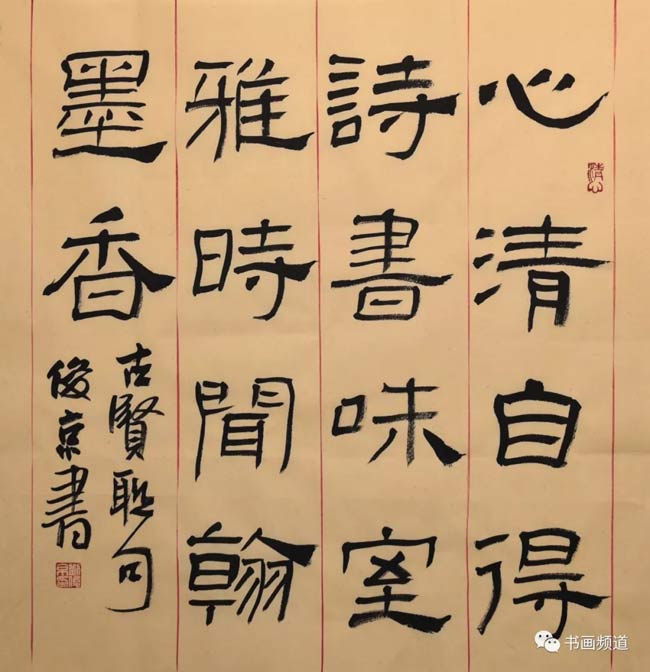 心清自得
詩書味室
雅時聞翰
墨香
古賢聯句
俊京書
清心
书画频道